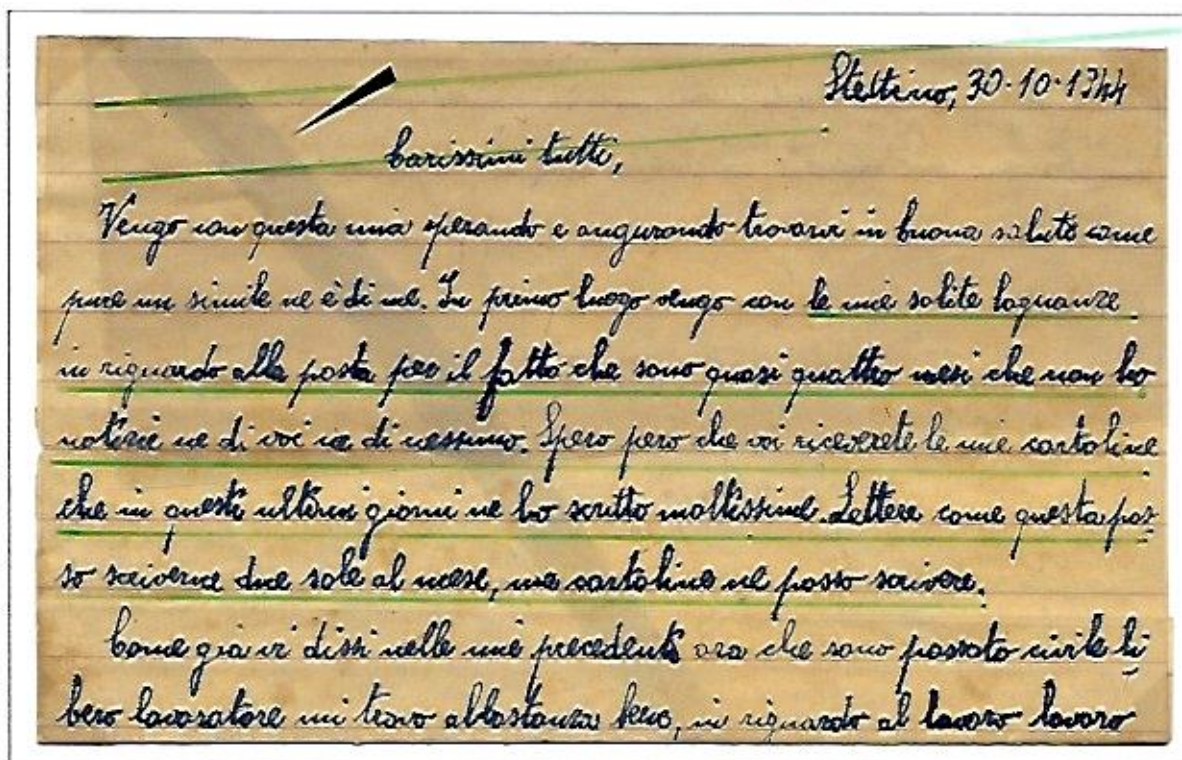 Stettino, 30-10-1944
Carissimi tutti,
Vengo con questa mia sperando e augurando trovarvi in buona salute come
pure un simile ne è di me. In primo luogo vengo con le mie solite lagnanze
in riguardo alla posta per il fatto che sono quasi quattro mesi che non ho
notizie ne di voi ne di nessuno. Spero pero che voi riceverete le mie cartoline
che in questi ultimi giorni ne ho scritto moltissime. Lettere come questa pos-
so scriverne due sole al mese, ma cartoline ne posso scrivere.
Come già vi dissi nelle mie precedenti ora che sono passato civile li-
bero lavoratore mi trovo abbastanza bene, in riguardo al lavoro lavoro